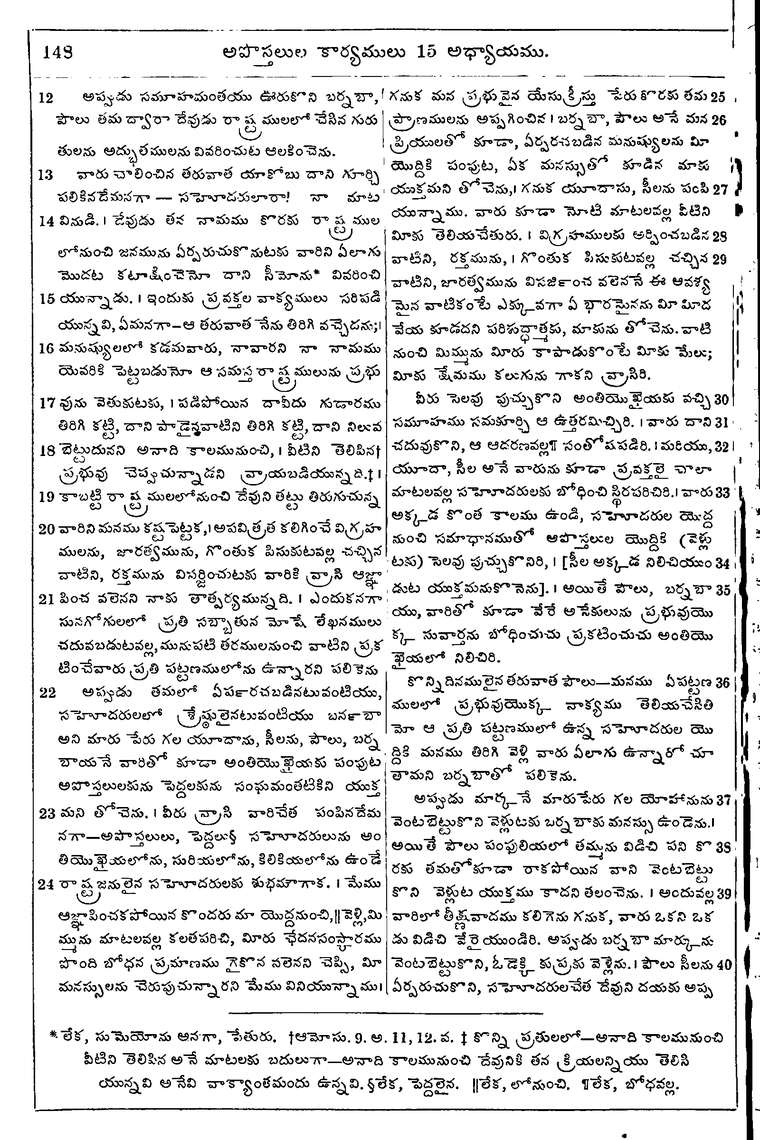 148 అపొస్తలుల కార్యములు 15 అధ్యాయము.
12 అప్పుడు సమూహమంతయు ఊరుకొని బర్నబా,
పౌలు తమ ద్వారా దేవుడు రాష్ట్రములలో చేసిన గురు
తులను అద్భుతములను వివరించుట ఆలకించెను.
13 వారు చాలించిన తరువాత యాకోబు దాని గూర్చి
పలికినదేమనగా — సహెూదరులారా! నా మాట
14 వినుడి. । దేవుడు తన నామము కొరకు రాష్ట్రముల
లోనుంచి జనమును ఏర్పరుచుకొనుటకు వారిని ఏలాగు
మొదట కటాక్షించెనో దాని సీమోను* వివరించి
15 యున్నాడు. । ఇందుకు ప్రవక్తల వాక్యములు సరిపడి
యున్నవి, ఏమనగా—ఆ తరువాత నేను తిరిగి వచ్చెదను;।
16 మనుష్యులలో కడమవారు, నావారని నా నామము
యెవరికి పెట్టబడునో ఆ సమస్త రాష్ట్రములును ప్రభు
17 వును వెతుకుటకు, । పడిపోయిన దావీదు గుడారము
తిరిగి కట్టి, దాని పాడైనవాటిని తిరిగి కట్టి, దాని నిలువ
18 బెట్టుదునని అనాది కాలమునుంచి, । వీటిని తెలిపిన†
ప్రభువు చెప్పుచున్నాడని వ్రాయబడియున్నది.‡ ।
19 కాబట్టి రాష్ట్రములలోనుంచి దేవుని తట్టు తిరుగుచున్న
20 వారిని మనము కష్టపెట్టక,। అపవిత్రత కలిగించే విగ్రహ
ములను, జారత్వమును, గొంతుక పిసుకుటవల్ల చచ్చిన
వాటిని, రక్తమును విసర్జించుటకు వారికి వ్రాసి ఆజ్ఞా
21 పించ వలెనని నాకు తాత్పర్యమున్నది. । ఎందుకనగా
సునగోగులలో ప్రతి సబ్బాతున మోషే లేఖనములు
చదువబడుటవల్ల, మునుపటి తరములనుంచి వాటిని ప్రక
టించేవారు ప్రతి పట్టణములోను ఉన్నారని పలికెను
22 అప్పుడు తమలో ఏపఁరచబడినటువంటియు,
సహెూదరులలో శ్రేష్ఠులైనటువంటియు బనఁబా
అని మారు పేరు గల యూదాను, సీలను, పౌలు, బర్న
బాయనే వారితో కూడా అంతియొఖైయకు పంపుట
అపొస్తలులకును పెద్దలకును సంఘమంతటికిని యుక్త
23 మని తోచెను. । వీరు వ్రాసి వారిచేత పంపినదేమ
నగా—అపొస్తలులు, పెద్దలు§ సహెూదరులును అం
తియొఖైయలోను, సురియలోను, కిలికియలోను ఉండే
24 రాష్ట్రజనులైన సహెూదరులకు శుభమౌగాక. । మేము
ఆజ్ఞాపించకపోయిన కొందరు మా యొద్దనుంచి,‖ వెళ్లి, మి
మ్మును మాటలవల్ల కలతపరిచి, మీరు ఛేదనసంస్కారము
పొంది బోధన ప్రమాణము గైకొన వలెనని చెప్పి, మీ
మనస్సులను చెరుపుచున్నారని మేము వినియున్నాము।
గనుక మన ప్రభువైన యేసుక్రీస్తు పేరు కొరకు తమ 25
ప్రాణములను అప్పగించిన । బర్నబా, పౌలు అనే మన 26
ప్రియులతో కూడా, ఏర్పరచబడిన మనుష్యులను మీ
యొద్దికి పంపుట, ఏక మనస్సుతో కూడిన మాకు
యుక్తమని తోచెను,। గనుక యూదాను, సీలను పంపి 27
యున్నాము. వారు కూడా నోటి మాటలవల్ల వీటిని
మీకు తెలియచేతురు. । విగ్రహములకు అర్పించబడిన 28
వాటిని, రక్తమును, । గొంతుక పిసుకుటవల్ల చచ్చిన 29
వాటిని, జారత్వమును విసజిఁంచ వలెననే ఈ ఆవశ్య
మైన వాటికంటే ఎక్కువగా ఏ భారమైనను మీ మీద
వేయ కూడదని పరిశుద్ధాత్మకు, మాకును తోచెను. వాటి
నుంచి మిమ్మును మీరు కాపాడుకొంటే మీకు మేలు;
మీకు క్షేమము కలుగును గాకని వ్రాసిరి.
వీరు సెలవు పుచ్చుకొని అంతియొఖైయకు వచ్చి 30
సమూహము సమకూర్చి ఆ ఉత్తరమిచ్చిరి. । వారు దాని 31
చదువుకొని, ఆ ఆదరణవల్ల¶ సంతోషపడిరి. । మరియు, 32
యూదా, సీల అనే వారును కూడా ప్రవక్తలై చాలా
మాటలవల్ల సహెూదరులకు బోధించి స్థిరపరిచిరి. । వారు 33
అక్కడ కొంత కాలము ఉండి, సహెూదరుల యొద్ద
నుంచి సమాధానముతో అపొస్తలుల యొద్దికి (వెళ్లు
టకు) సెలవు పుచ్చుకొనిరి, । [సీల అక్కడ నిలిచియుం 34
డుట యుక్తమనుకొనెను]. । అయితే పౌలు, బర్నబా 35
యు, వారితో కూడా వేరే అనేకులును ప్రభువుయొ
క్క సువార్తను బోధించుచు ప్రకటించుచు అంతియొ
ఖైయలో నిలిచిరి.
కొన్ని దినములైన తరువాత పౌలు—మనము ఏ పట్టణ 36
ములలో ప్రభువుయొక్క వాక్యము తెలియచేసితి
మో ఆ ప్రతి పట్టణములో ఉన్న సహెూదరుల యొ
ద్దికి మనము తిరిగి వెళ్లి వారు ఏలాగు ఉన్నారో చూ
తామని బర్నబాతో పలికెను.
అప్పుడు మార్కనే మారుపేరు గల యోహానును 37
వెంటబెట్టుకొని వెళ్లుటకు బర్నబాకు మనస్సు ఉండెను.।
అయితే పౌలు పంఫులియలో తమ్మును విడిచి పని కొ 38
రకు తమతోకూడా రాకపోయిన వాని వెంటబెట్టు
కొని వెళ్లుట యుక్తము కాదని తలంచెను. । అందువల్ల 39
వారిలో తీక్ష్ణవాదము కలిగెను గనుక, వారు ఒకని ఒక
డు విడిచి వేరైయుండిరి. అప్పుడు బర్నబా మార్కును
వెంటబెట్టుకొని, ఓడెక్కి కుప్రకు వెళ్లెను. । పౌలు సీలను 40
ఏర్పరుచుకొని, సహెూదరులచేత దేవుని దయకు అప్ప
* లేక, సుమెయోను అనగా, పేతురు. †ఆమోసు. 9. అ. 11, 12. వ. ‡ కొన్ని ప్రతులలో—అనాది కాలమునుంచి
వీటిని తెలిపిన అనే మాటలకు బదులుగా—అనాది కాలమునుంచి దేవునికి తన క్రియలన్నియు తెలిసి
యున్నవి అనేవి వాక్యాంతమందు ఉన్నవి. §లేక, పెద్దలైన. ‖లేక, లోనుంచి. ¶లేక, బోధవల్ల.